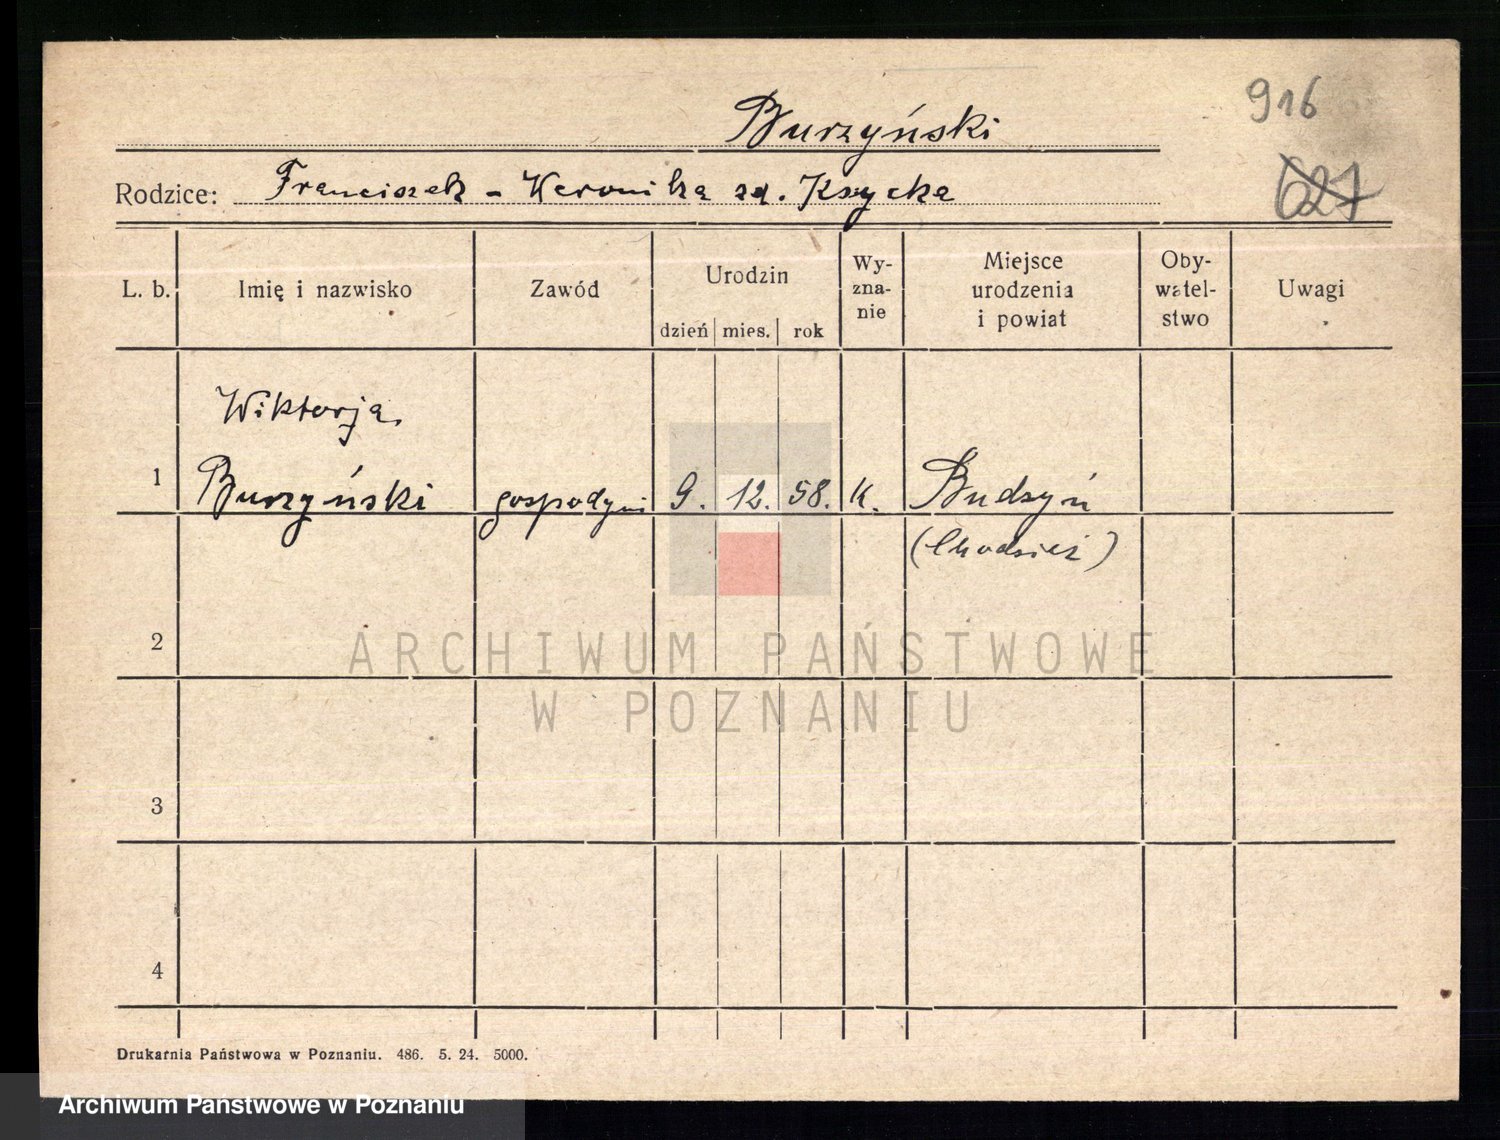 916
Burzyński
Rodzice: Franciszek - Weronika zd. Ksycka
627
L. b. Imię i nazwisko Zawód Urodzin dzień mies. rok Wy-zna-nie Miejsce urodzenia i powiat Oby-watel-stwo Uwagi
Wiktorja
1 Burzyński gospodyni 9. 12. 58. k. Budzyń
(Chodzież)
2
ARCHIWUM PAŃSTWOWE
W POZNANIU
3
4
Drukarnia Państwowa w Poznaniu. 486. 5. 24. 5000.
Archiwum Państwowe w Poznaniu